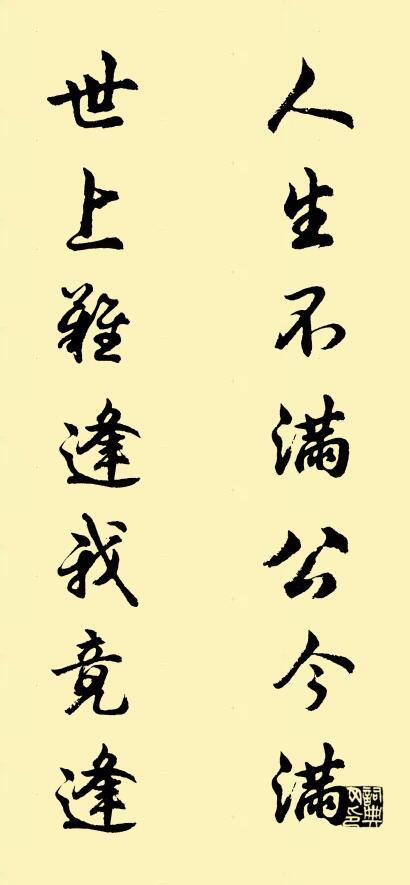 人生不满公今满
世上难逢我竟逢